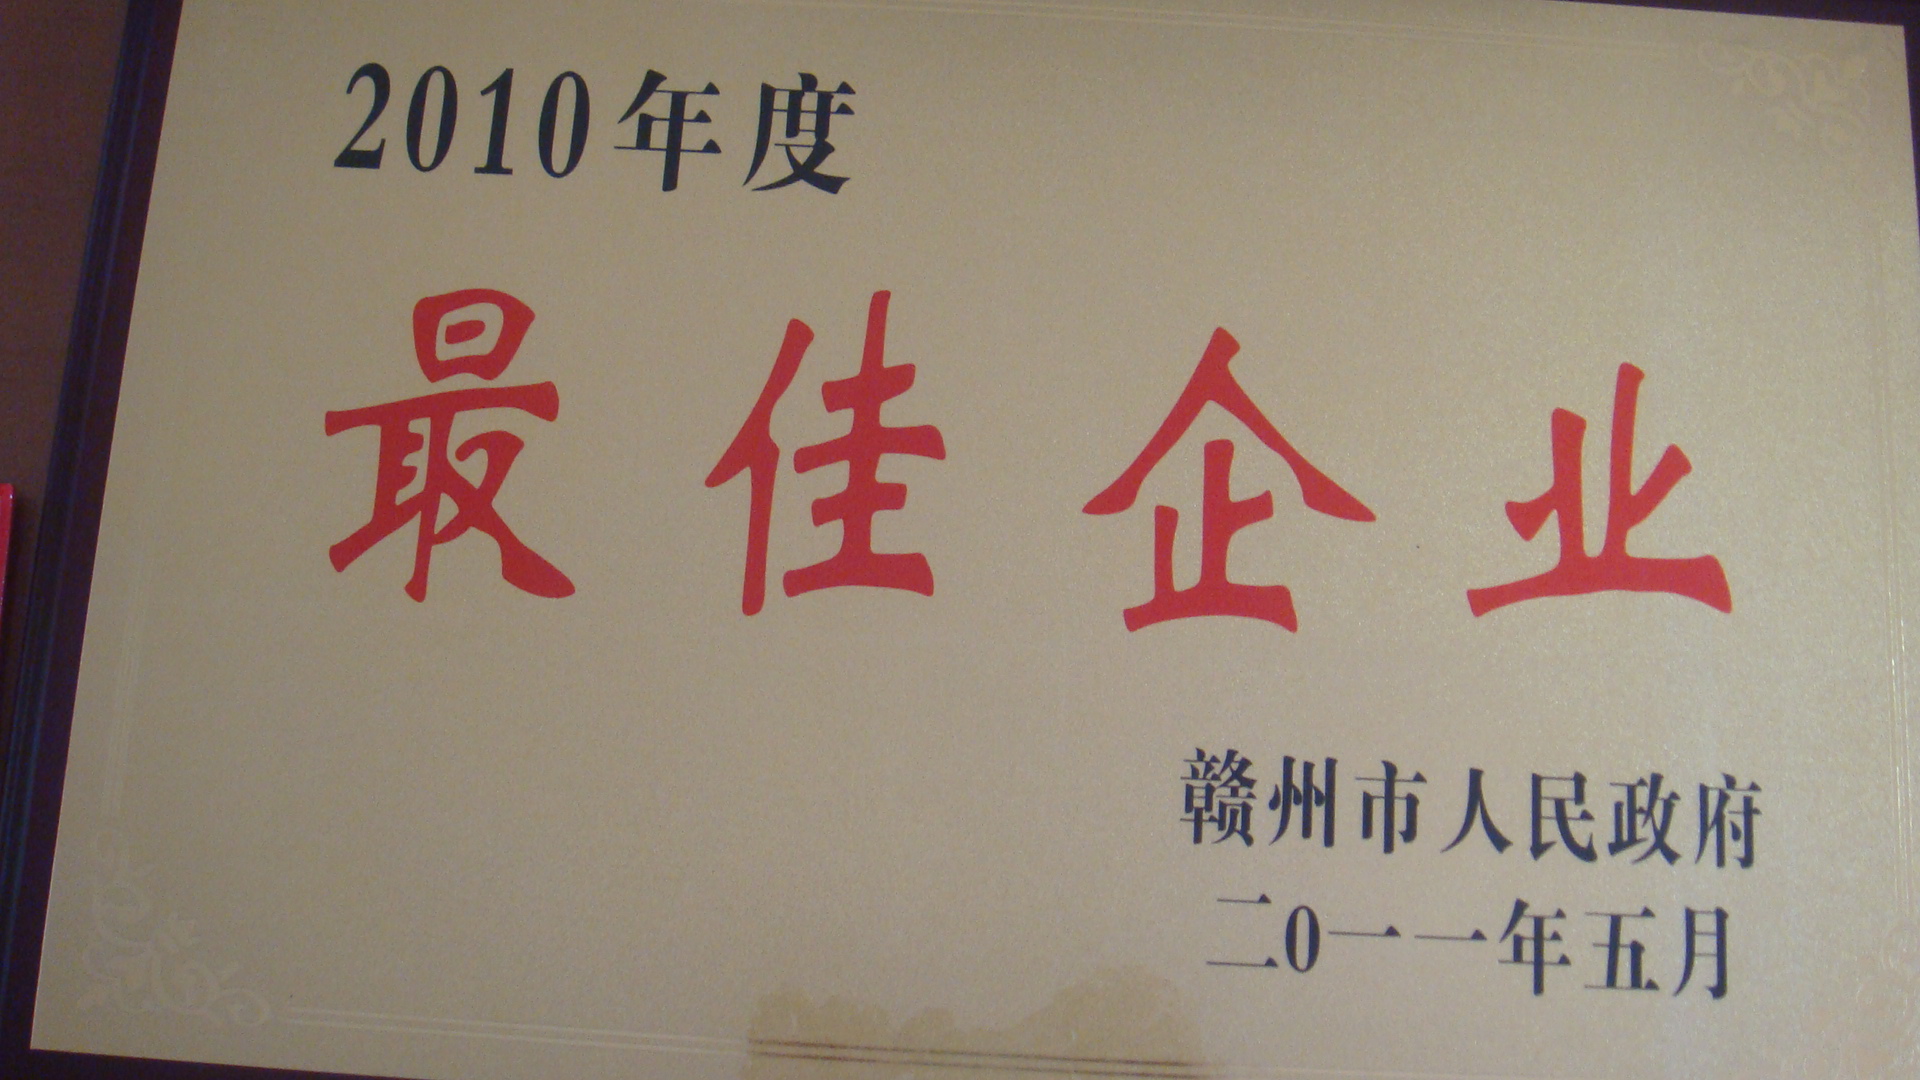 2010年度
最佳企业
赣州市人民政府
二0一一年五月